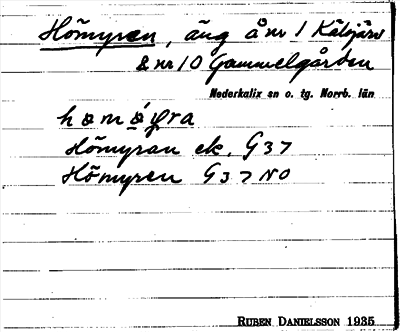 Hömyren, äng å nr 1 Kälsjärv
& nr 10 Gammelgården
Nederkalix sn o. tg. Norrb. län
Hömyran ek. G 37
Hömyren G 37 NO
RUBEN DANIELSSON 1935